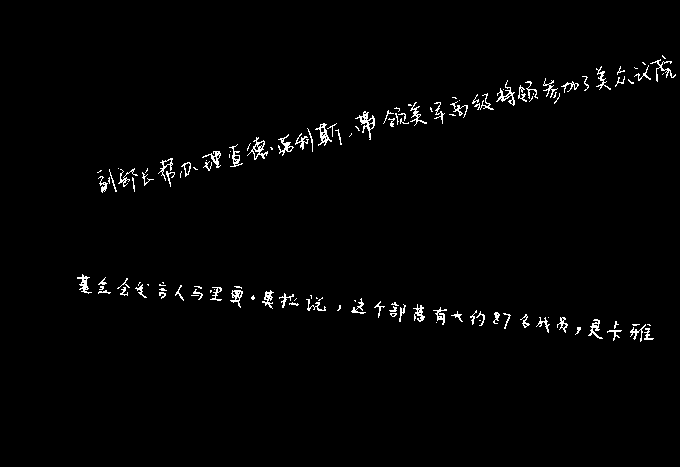 副部长帮办理查德·诺利斯、带领美军高级将领参加了美众议院
基金会发言人马里奥·莫拉说，这个部落有大约87名成员，是卡雅